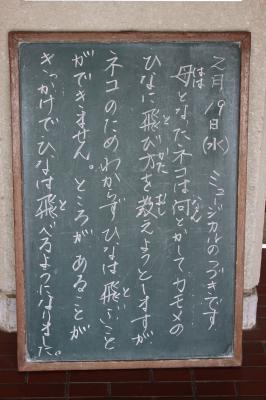 2月19日(水) ミュージカルのつづきです
母となったネコは何とかしてカモメの
ひなに飛び方を教えようとしますが
ネコのためわからずひなは飛ぶこと
ができません。ところがあることが
きっかけでひなは飛べるようになりました。